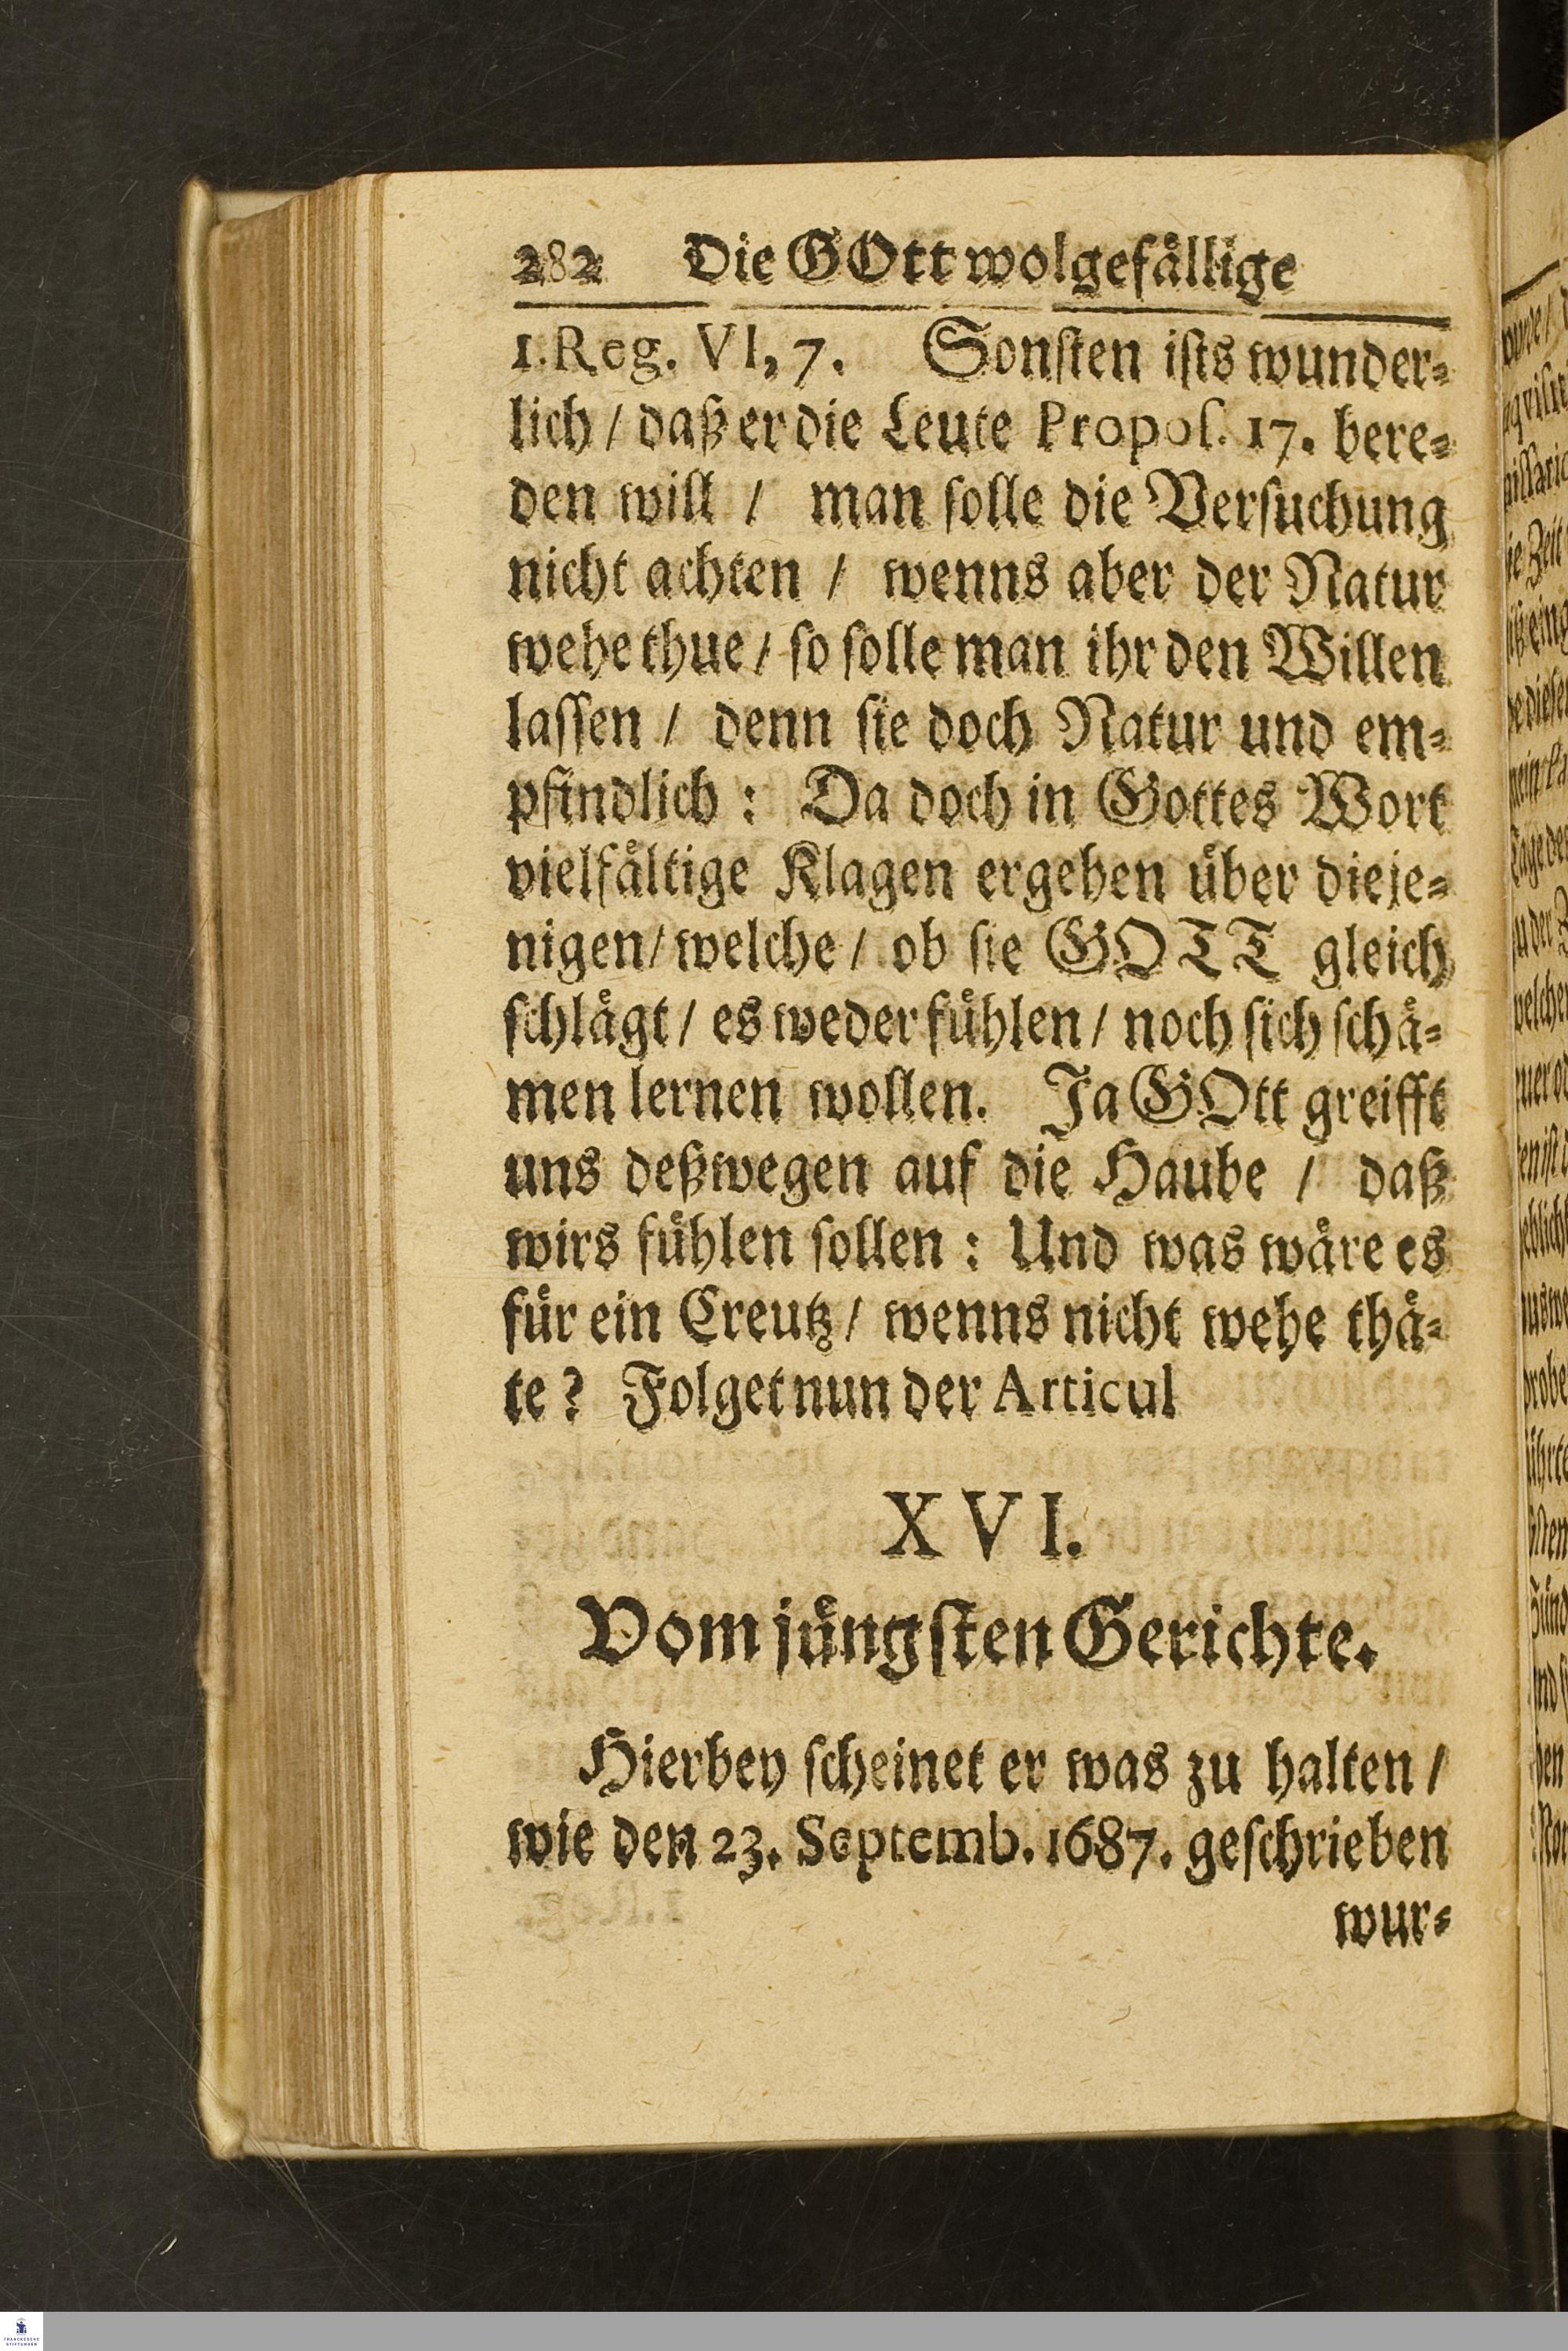 282 Die GOtt wolgefällige
1. Reg. VI, 7. Sonsten ists wunder-
lich / daß er die Leute Propos. 17. bere-
den will / man solle die Versuchung
nicht achten / wenns aber der Natur
wehe thue / so solle man ihr den Willen
lassen / denn sie doch Natur und em-
pfindlich : Da doch in Gottes Wort
vielfältige Klagen ergehen über dieje-
nigen / welche / ob sie GOTT gleich
schlägt / es weder fühlen / noch sich schä-
men lernen wollen. Ja GOtt greifft
uns deßwegen auf die Haube / daß
wirs fühlen sollen : Und was wäre es
für ein Creutz / wenns nicht wehe thä-
te ? Folget nun der Articul
XVI.
Vom jüngsten Gerichte.
Hierbey scheinet er was zu halten /
wie den 23. Septemb. 1687. geschrieben
wur-
FRANCKESCHE
STIFTUNGEN